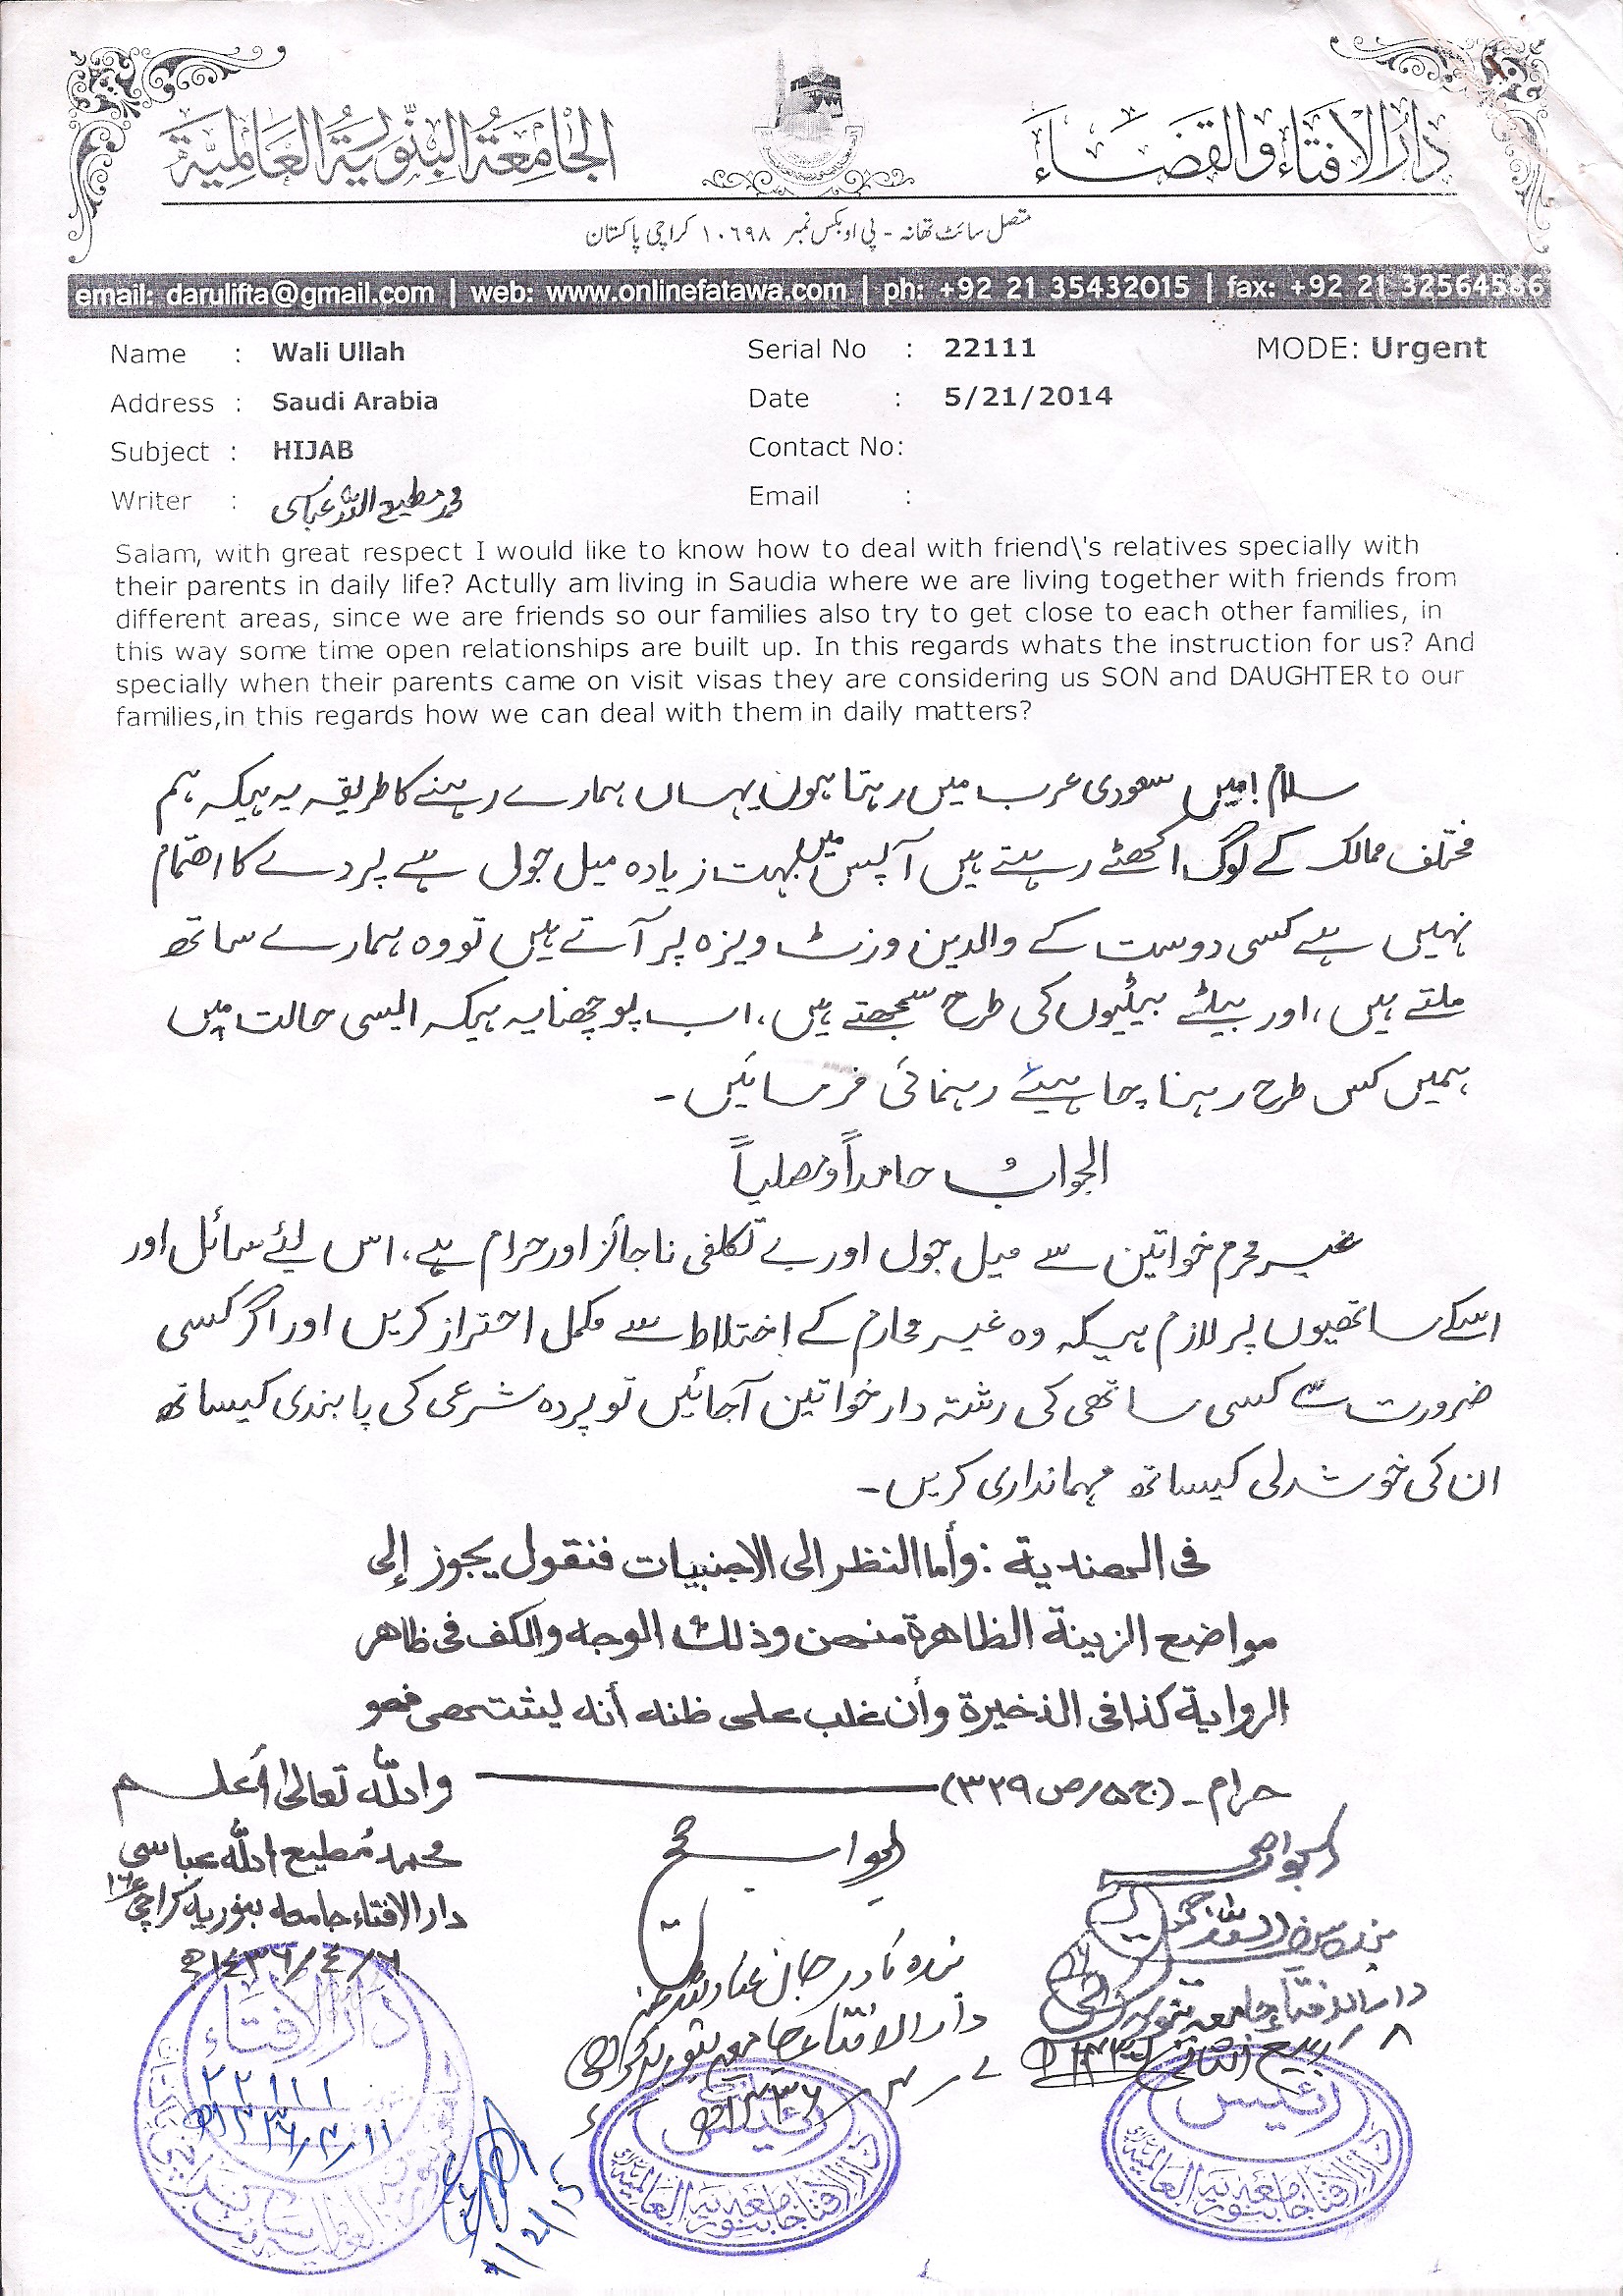 دار الافتاء والقضاء
الجامعة البنورية العالمية
متصل سائٹ تھانہ - پی او بکس نمبر ۱۰۶۹۸ کراچی پاکستان
email: darulifta@gmail.com | web: www.onlinefatawa.com | ph: +92 21 35432015 | fax: +92 21 32564586
Name : Wali Ullah Serial No : 22111 MODE: Urgent
Address : Saudi Arabia Date : 5/21/2014
Subject : HIJAB Contact No:
Writer : محمد مطیع اللہ عباسی Email :
Salam, with great respect I would like to know how to deal with friend\'s relatives specially with
their parents in daily life? Actully am living in Saudia where we are living together with friends from
different areas, since we are friends so our families also try to get close to each other families, in
this way some time open relationships are built up. In this regards whats the instruction for us? And
specially when their parents came on visit visas they are considering us SON and DAUGHTER to our
families,in this regards how we can deal with them in daily matters?
سلام! میں سعودی عرب میں رہتا ہوں یہاں ہمارے رہنے کا طریقہ یہ ہیکہ ہم
مختلف ممالک کے لوگ اکھٹے رہتے ہیں آپس میں بہت زیادہ میل جول ہے پردے کا اھتمام
نہیں ہے کسی دوست کے والدین وزٹ ویزہ پر آتے ہیں تو وہ ہمارے ساتھ
ملتے ہیں، اور بیٹے بیٹیوں کی طرح سمجھتے ہیں، اب پوچھنا یہ ہیکہ ایسی حالت میں
ہمیں کس طرح رہنا چاہیئے رہنمائی فرمائیں۔
الجواب حامداً ومصلیاً
غیر محرم خواتین سے میل جول اور بے تکلفی ناجائز اور حرام ہے، اس لئے سائل اور
اسکے ساتھیوں پر لازم ہیکہ وہ غیر محارم کے اختلاط سے مکمل احتراز کریں اور اگر کسی
ضرورت سے کسی ساتھی کی رشتہ دار خواتین آجائیں تو پردہ شرعی کی پابندی کیساتھ
ان کی خوشدلی کیساتھ مہمانداری کریں۔
فی الھندیة : وأما النظر الی الاجنبیات فنقول یجوز إلی
مواضع الزینة الظاھرة منھن وذلک الوجه والکف فی ظاھر
الروایة کذا فی الذخیرة وأن غلب علی ظنه أنه لیشتھی فھو
حرام ۔ (ج۵/ص۳۲۹) واللہ تعالیٰ أعلم
محمد مُطیع اللہ عباسی
دار الافتاء جامعہ بنوریہ کراچی ۱۶
۶/٤/۱٤۳٦ھ
الجواب صحیح
بندہ نادر جان
دار الافتاء جامعہ بنوریہ کراچی
الجواب صحیح
دار الافتاء جامعہ بنوریہ
۸ / ربیع الثانی
دار الافتاء
۲۲۱۱۱
۱۱/۴/۱۴۳۶ھ
رئیس
دار الافتاء جامعه بنوریه العالمیة
رئیس
دار الافتاء جامعه بنوریه العالمیة